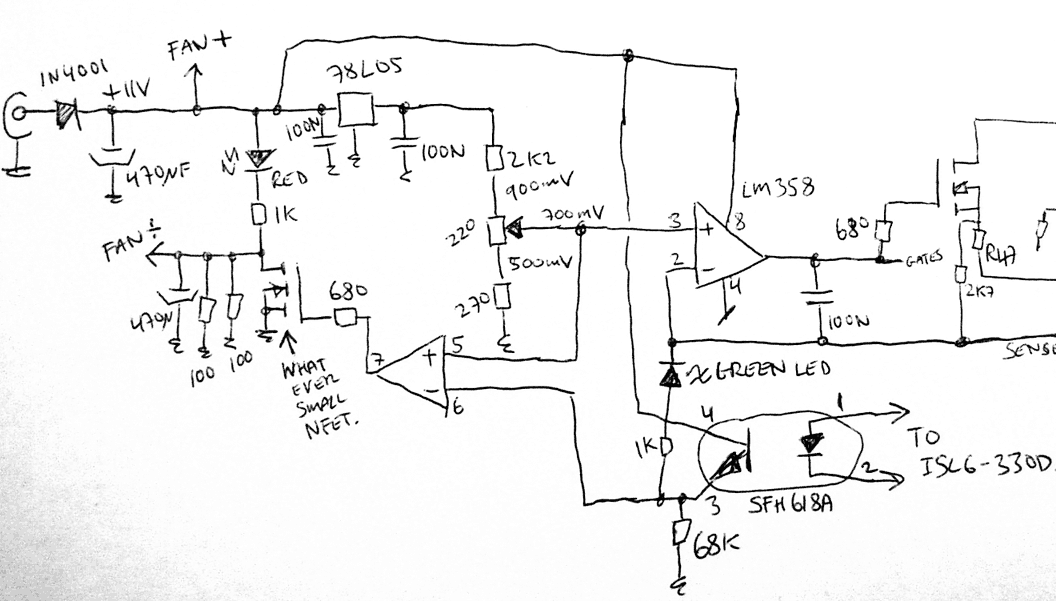 FAN+
1N4001
+11V
78L05
100N
470µF
RED
100N
2K2
900mV
LM358
1K
FAN÷
220
700mV
3
8
+
680
500mV
2
−
4
GATES
R47
470µ
680
270
2K7
100
100
100N
WHAT
EVER
SMALL
NFET.
7
+
5
−
6
GREEN LED
SENSE
4
1
TO
ISL6-330D.
1K
2
3
SFH618A
68K